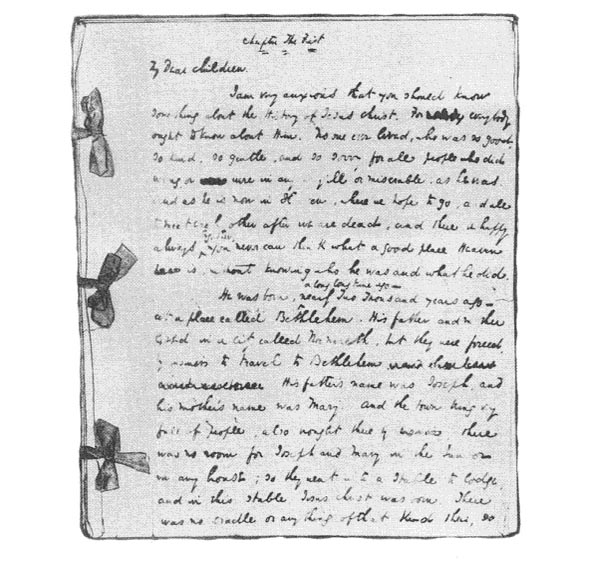 Chapter The First
My Dear children.
I am very anxious that you should know
something about the History of Jesus Christ. For everybody
ought to know about Him. No one ever lived, who was so good,
so kind, so gentle, and so sorry for all people who did
wrong, or were in any ill or miserable, as he was.
And as he is now in Heaven, where we hope to go, and all
to meet each other after we are dead, and there be happy
always together, you never can think what a good place Heaven
is, without knowing who he was and what he did.
a long long time ago
He was born, nearly Two Thousand years ago
at a place called Bethlehem. His father and mother
lived in a city called Nazareth, but they were forced,
by business to travel to Bethlehem
His father's name was Joseph, and
his mother's name was Mary. And the town being very
full of people, also brought there by business, there
was no room for Joseph and Mary in the Inn or
in any house; so they went into a Stable to lodge,
and in this stable Jesus Christ was born. There
was no cradle or anything of that kind there, so